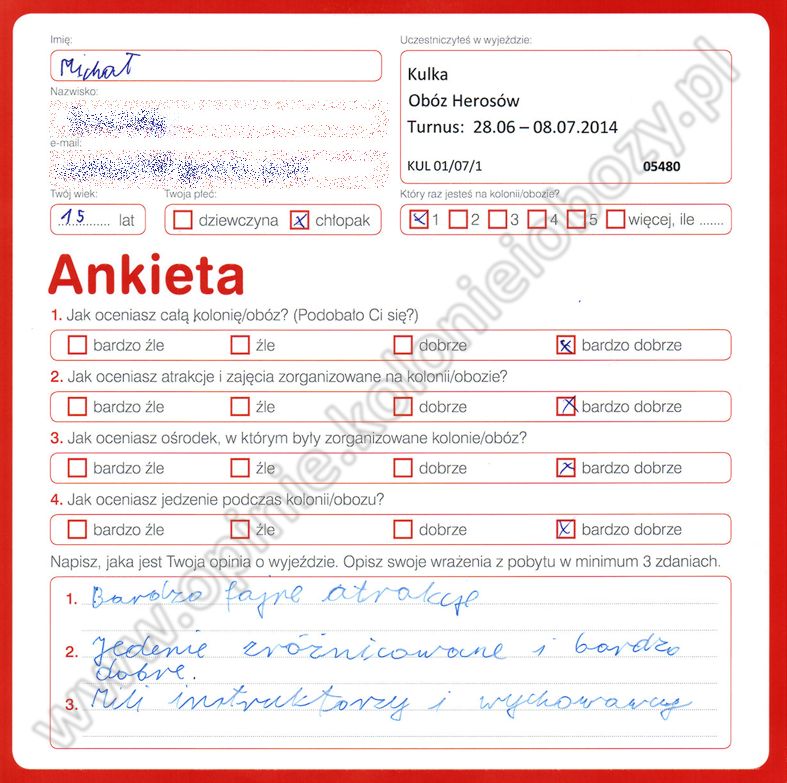 Imię:
Michał
Uczestniczyłeś w wyjeździe:
Kulka
Obóz Herosów
Turnus: 28.06 – 08.07.2014
KUL 01/07/1 05480
Nazwisko:
e-mail:
Twój wiek:
15 lat
Twoja płeć:
dziewczyna x chłopak
Który raz jesteś na kolonii/obozie?
x 1 2 3 4 5 więcej, ile .......
Ankieta
1. Jak oceniasz całą kolonię/obóz? (Podobało Ci się?)
bardzo źle źle dobrze x bardzo dobrze
2. Jak oceniasz atrakcje i zajęcia zorganizowane na kolonii/obozie?
bardzo źle źle dobrze x bardzo dobrze
3. Jak oceniasz ośrodek, w którym były zorganizowane kolonie/obóz?
bardzo źle źle dobrze x bardzo dobrze
4. Jak oceniasz jedzenie podczas kolonii/obozu?
bardzo źle źle dobrze x bardzo dobrze
Napisz, jaka jest Twoja opinia o wyjeździe. Opisz swoje wrażenia z pobytu w minimum 3 zdaniach.
1. Bardzo fajne atrakcje
2. Jedenie zróżnicowane i bardzo
dobre.
3. Mili instruktorzy i wychowawcy
www.opinie.kolonieiobozy.pl